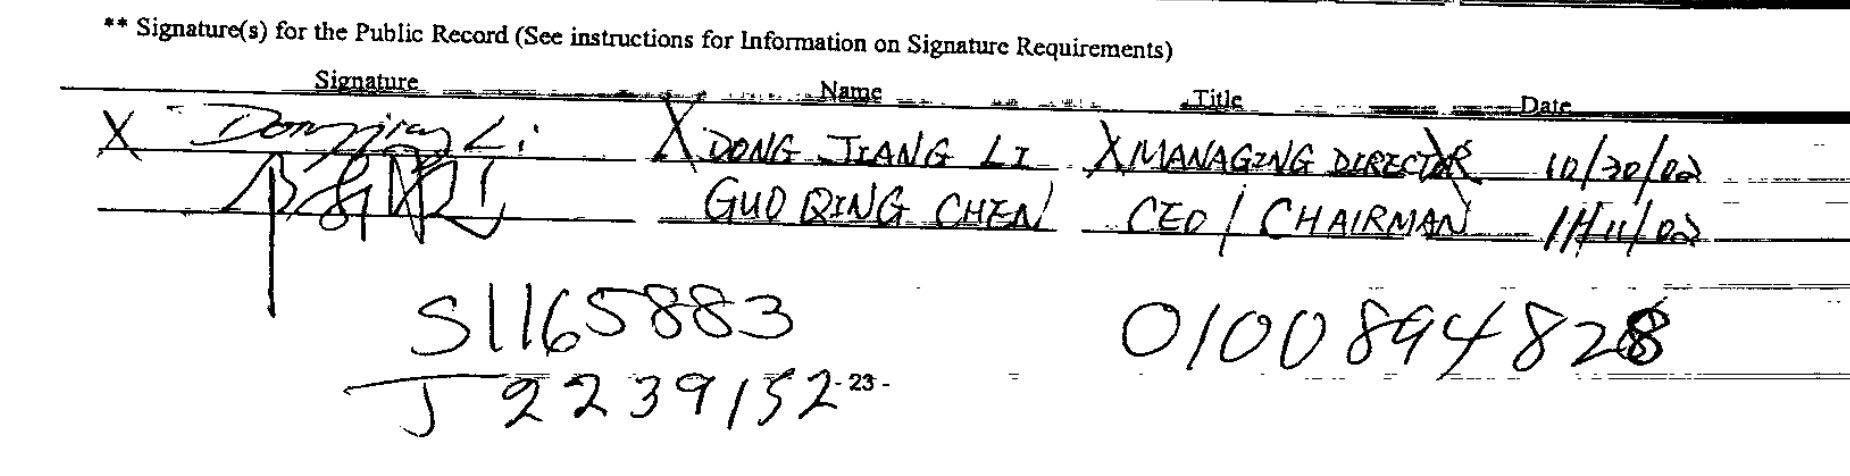 ** Signature(s) for the Public Record (See instructions for Information on Signature Requirements)
Signature Name Title Date
X Dongjiang Li X DONG JIANG LI X MANAGING DIRECTOR 10/30/02
GUO QING CHEN CEO / CHAIRMAN 11/11/02
S1165883 0100894828
J2239152 - 23 -